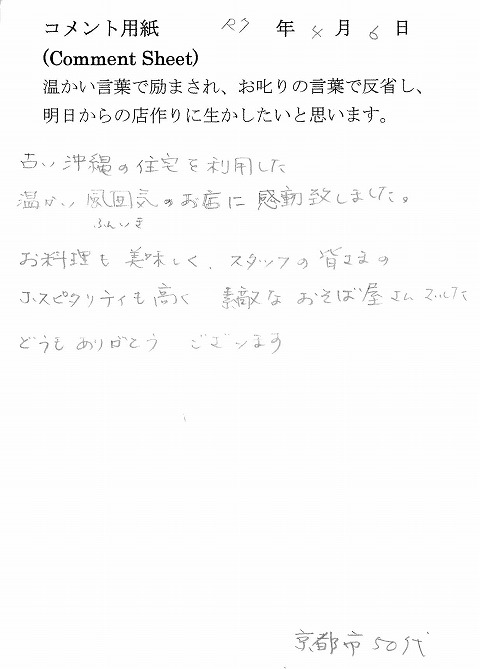 コメント用紙 R7 年 4 月 6 日
(Comment Sheet)
温かい言葉で励まされ、お叱りの言葉で反省し、
明日からの店作りに生かしたいと思います。
古い沖縄の住宅を利用した
温かい雰囲気のお店に感動致しました。
ふんいき
お料理も美味しく、スタッフの皆さまの
ホスピタリティも高く 素敵なおそば屋さんでした
どうもありがとう ございます
京都市50代